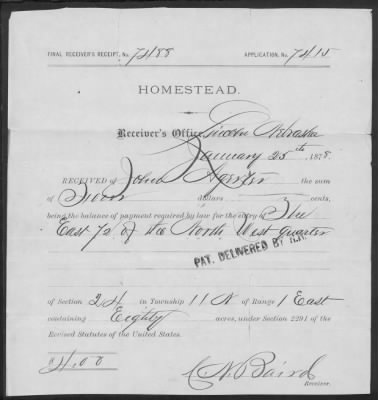 FINAL RECEIVER'S RECEIPT, No. 7488 APPLICATION, No. 7415
HOMESTEAD.
Receiver's Office, Lincoln Nebraska
January 25th 1878.
RECEIVED of John the sum
of dollars cents,
being the balance of payment required by law for the entry of The
East 1/2 of the North West quarter
PAT. DELIVERED BY
of Section 24 in Township 11 N of Range 1 East
containing Eighty acres, under Section 2291 of the
Revised Statutes of the United States.
$4.00
C N Baird
Receiver.